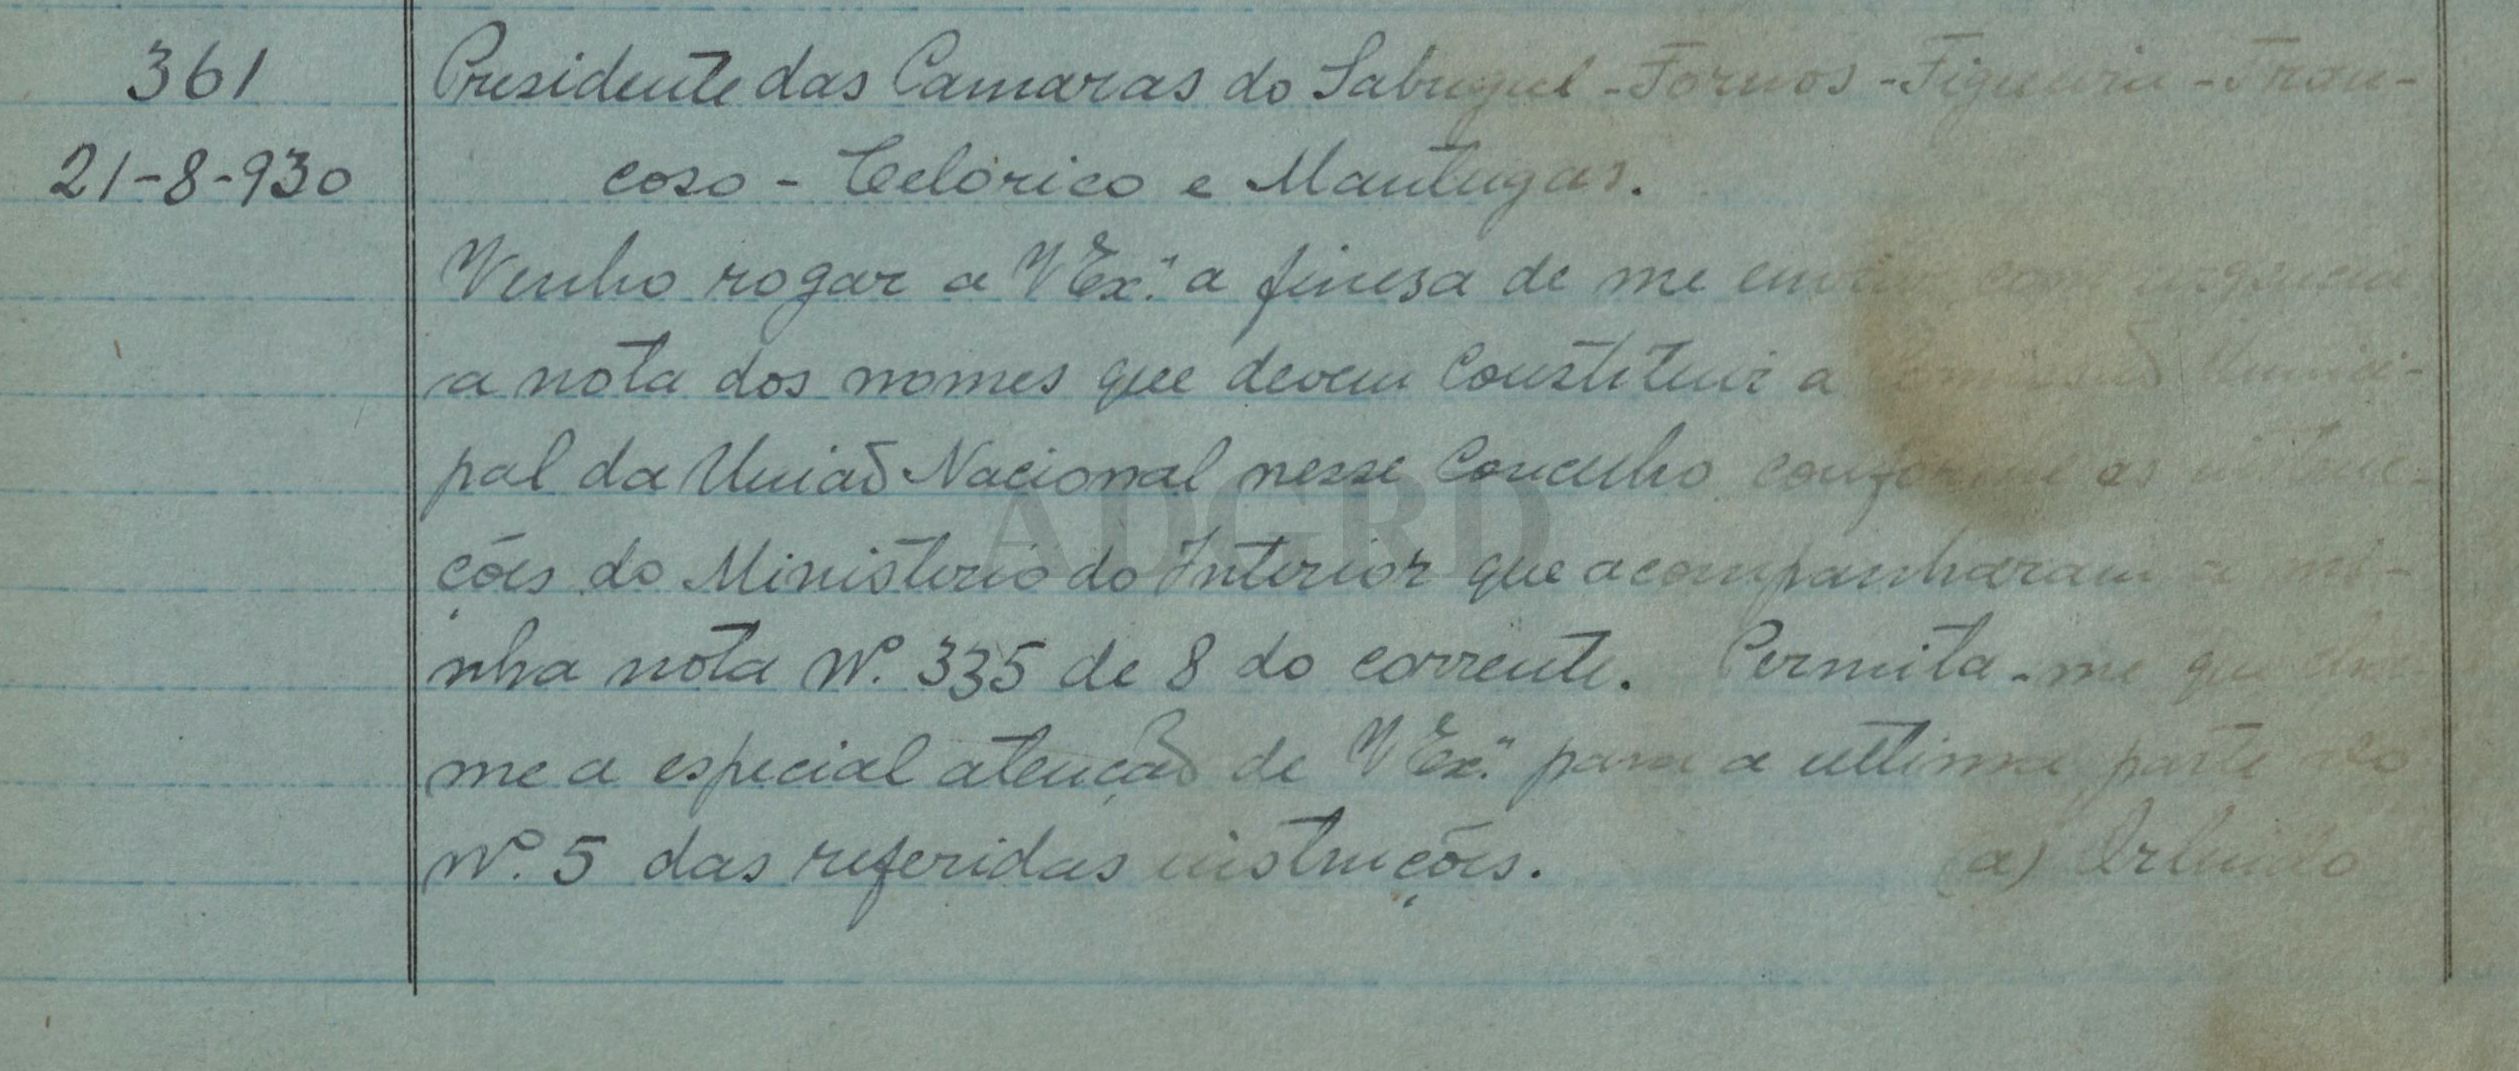 361
Presidente das Camaras do Sabugal - Fornos - Figueira - Tran-
21-8-930
coso - Celórico e Manteigas.
Venho rogar a V Ex.ª a finesa de me enviar com urgencia
a nota dos nomes que devem Constituir a Comissão Munici-
pal da União Nacional nesse Concelho conforme as instru-
ções do Ministerio do Interior que acompanharam a mi-
nha nota Nº. 335 de 8 do corrente. Permita-me que
me a especial atenção de V Ex.ª para a ultima parte do
Nº. 5 das referidas instruções. (a) Orlindo
ADGRD